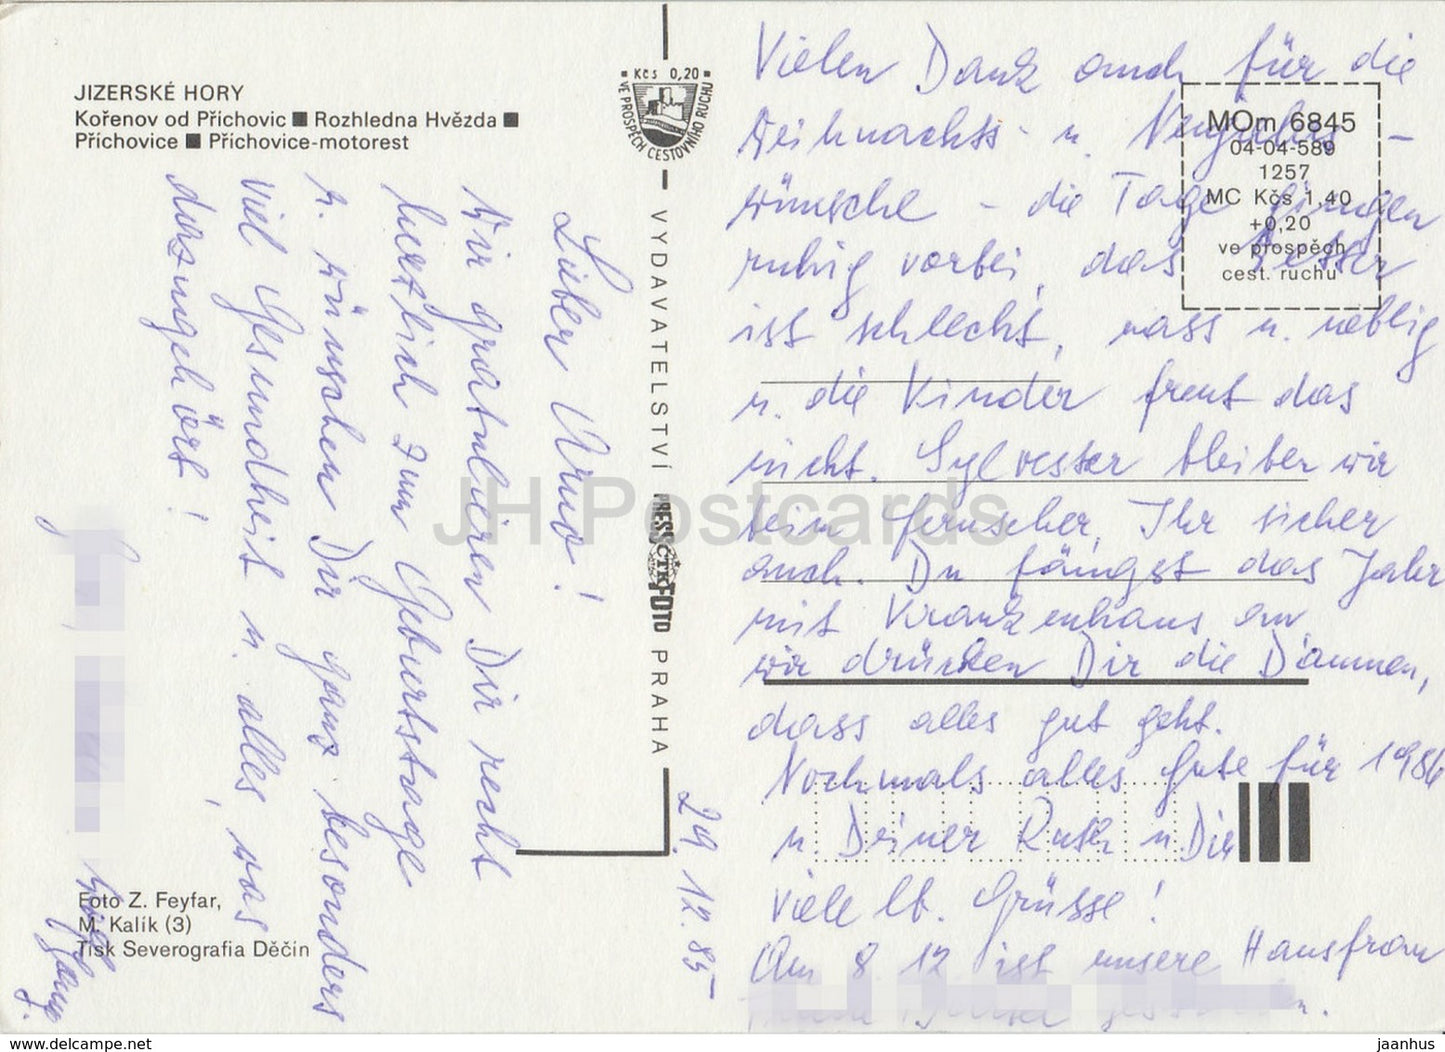 JIZERSKÉ HORY
Kořenov od Příchovic ■ Rozhledna Hvězda ■
Příchovice ■ Příchovice-motorest
Kčs 0,20
VE PROSPĚCH CESTOVNÍHO RUCHU
VYDAVATELSTVÍ PRESSFOTO PRAHA
ČTK
MOm 6845
04-04-589
1257
MC Kčs 1,40
+0,20
ve prospěch
cest. ruchu
29. 12. 85
Lieber Arno!
Wir gratulieren Dir recht
herzlich zum Geburtstage
u. wünschen Dir ganz besonders
viel Gesundheit u. alles, was
dazugehört!
Vielen Dank auch für die
Weihnachts- u. Neujahrs-
wünsche - die Tage gingen
ruhig vorbei, das Wetter
ist schlecht, nass u. neblig
u. die Kinder freut das
nicht. Sylvester bleiben wir
beim Fernseher, Ihr sicher
auch. Du fängst das Jahr
mit Krankenhaus an,
wir drücken Dir die Daumen,
dass alles gut geht.
Nochmals alles Gute für 1986
u. Deiner Ruth u Dir
viele lb. Grüsse!
Am 8. 12 ist unsere Hausfrau
Foto Z. Feyfar,
M. Kalík (3)
Tisk Severografia Děčín
JH Postcards
www.delcampe.net
jaanhus